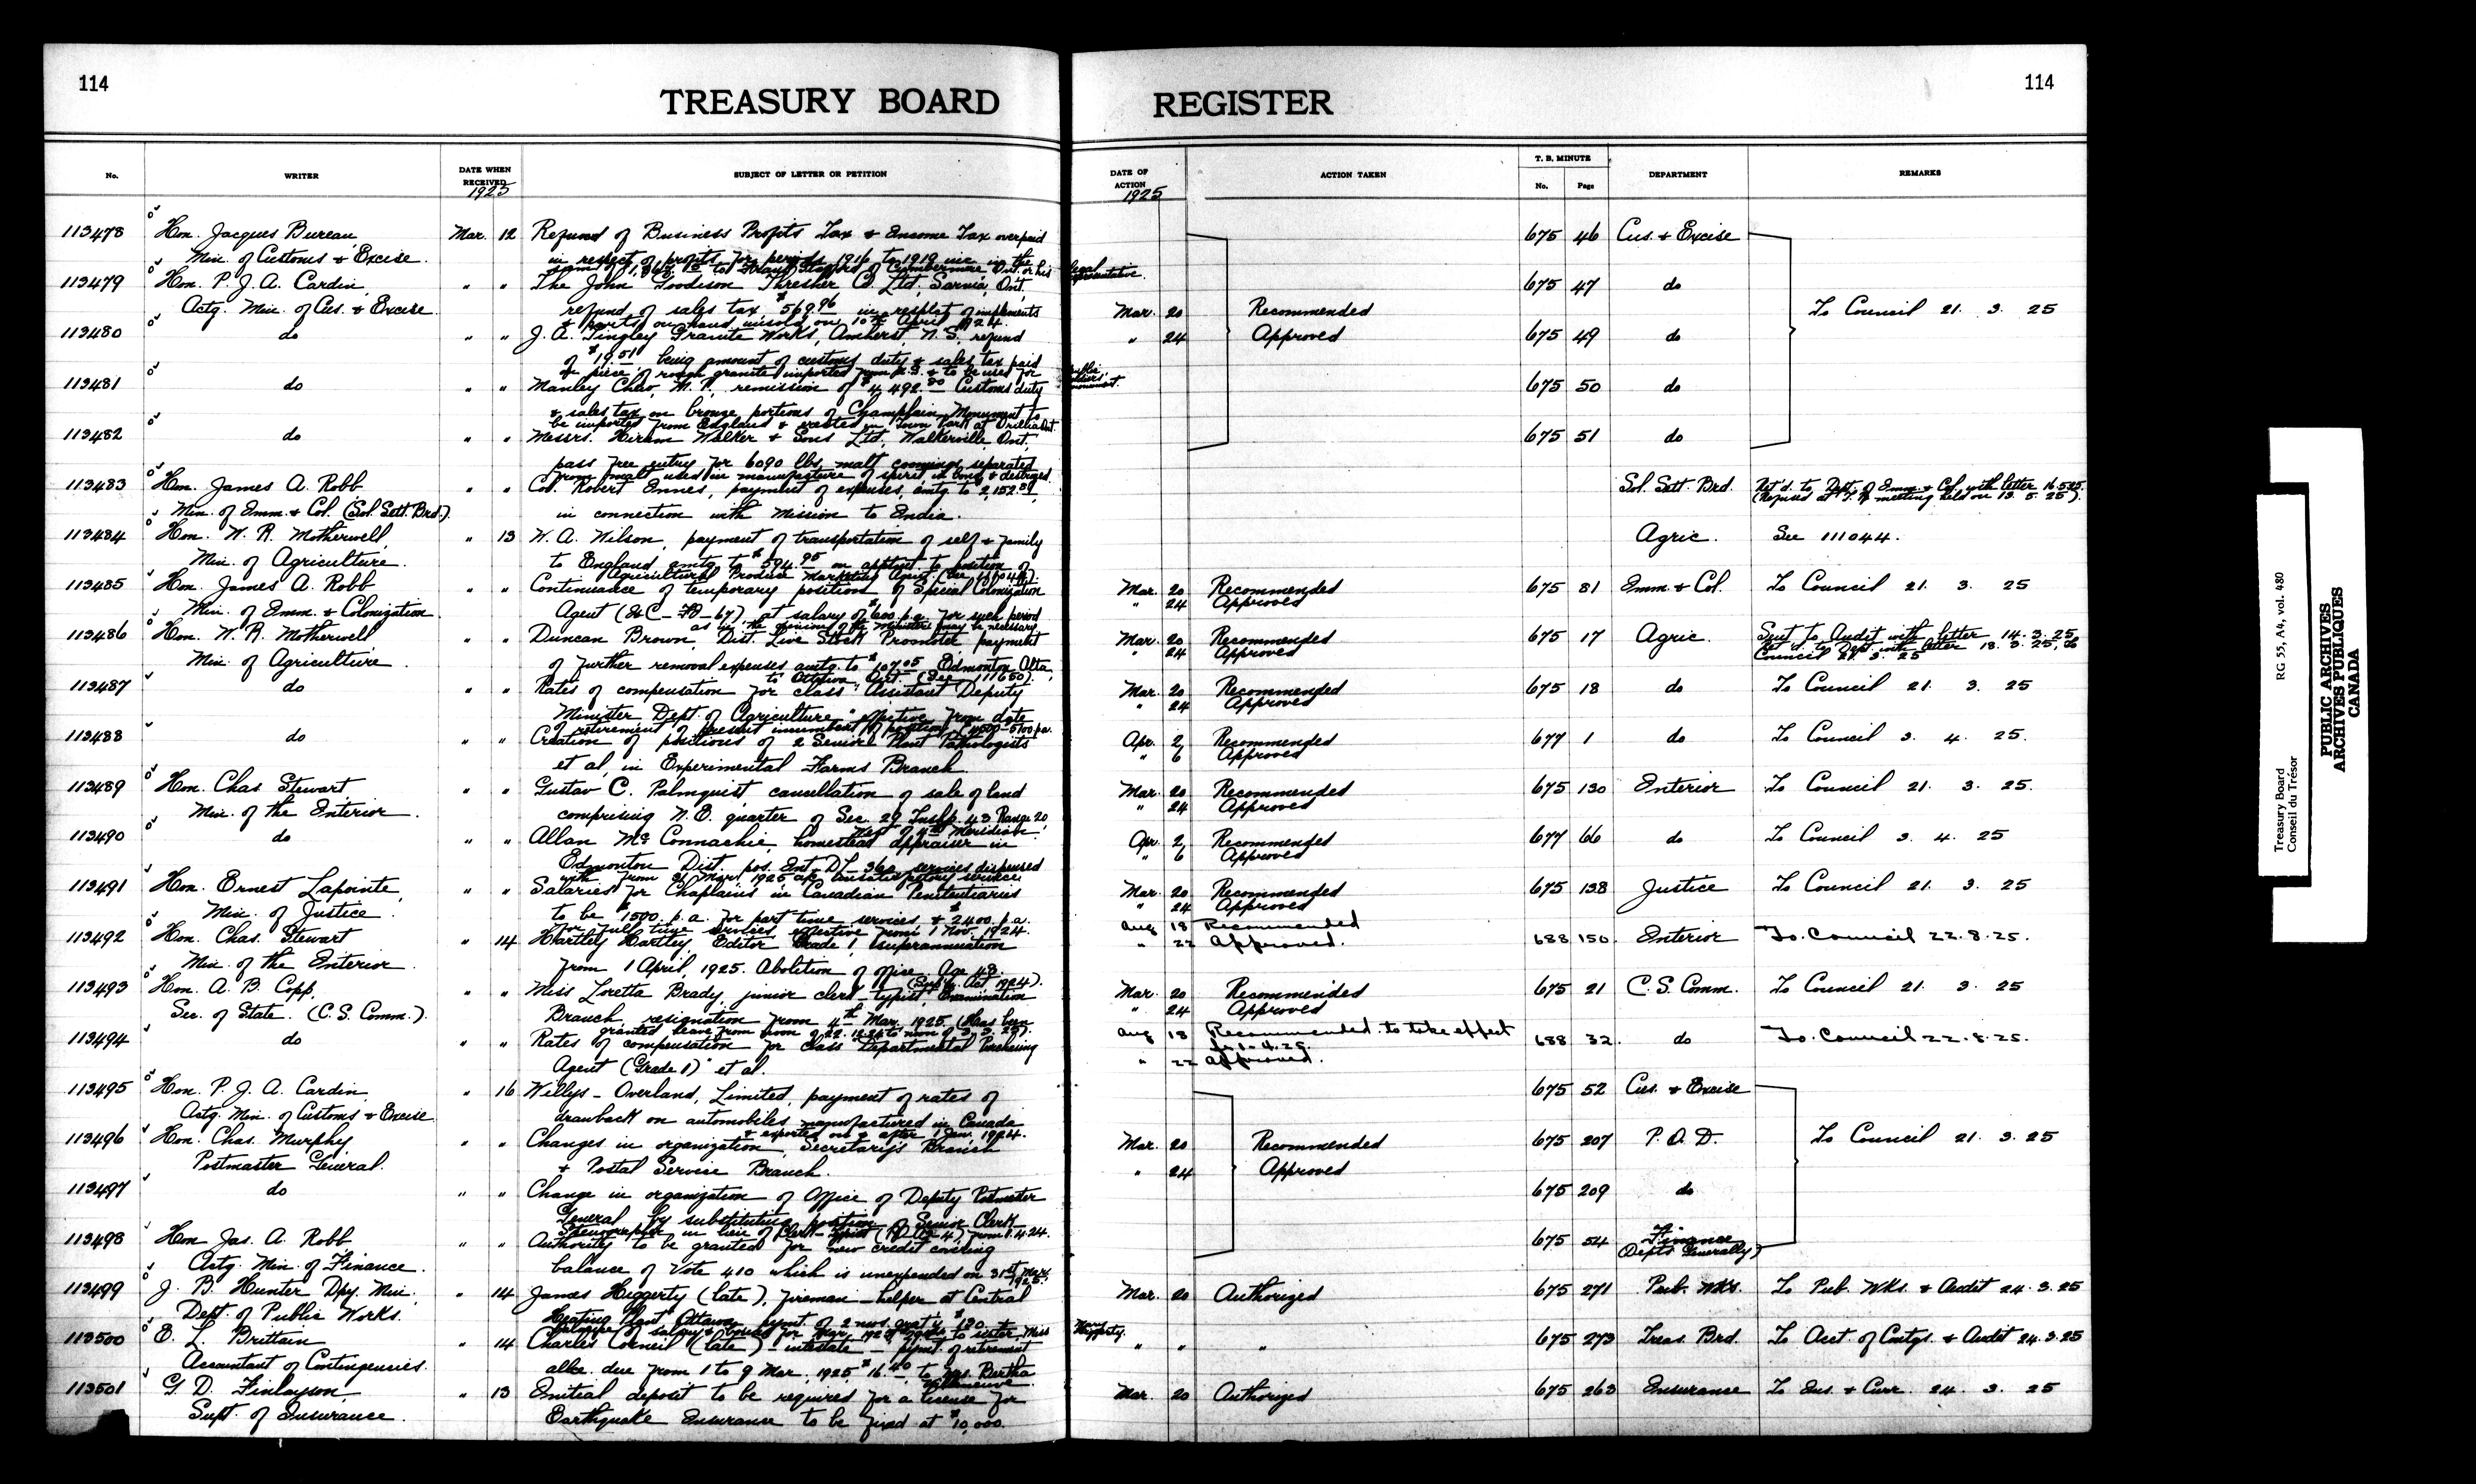 114
TREASURY BOARD
No.
WRITER
DATE WHEN RECEIVED
1925
SUBJECT OF LETTER OR PETITION
113478 Hon. Jacques Bureau Mar. 12 Refund of Business Profits Tax & Income Tax overpaid
Min. of Customs & Excise. in respect of profits for periods 1916 to 1919 inc. in the
113479 Hon. P. J. A. Cardin, " " The John Goodison Thresher Co. Ltd., Sarnia, Ont.
Actg. Min. of Cus. & Excise. refund of sales tax $569.96 in respect of implements
& parts on hand unsold on 10th April 1924.
113480 do " " J. A. Tingley Granite Works, Amherst, N. S., refund
of $19.51 being amount of customs duty & sales tax paid
on piece of rough granite imported from U.S. & to be used for
113481 do " " Manley Chew, M. P., remission of $4,492.80 Customs duty
& sales tax on bronze portions of Champlain Monument to
be imported from England & erected in Town Park at Orillia Ont.
113482 do " " Messrs. Hiram Walker & Sons Ltd., Walkerville Ont.
pass free entry for 6090 lbs. malt combings separated
from malt used in manufacture of spirit in bond & destroyed.
113483 Hon. James A. Robb " " Col. Robert Innes, payment of expenses amtg. to 2,152.
Min. of Imm. & Col. (Sol. Sett. Brd.). in connection with Mission to India.
113484 Hon. W. R. Motherwell " 13 W. A. Wilson, payment of transportation of self & family
Min. of Agriculture. to England amtg. to $594.95 on apptmt. to position of
Agricultural Produce Marketing Agent.
113485 Hon. James A. Robb " " Continuance of temporary positions of Special Colonization
Min. of Imm. & Colonization. Agent at salary of $600 p.a. for such period
as in the opinion of the Minister may be necessary
113486 Hon. W. R. Motherwell " " Duncan Brown, Dist. Live Stock Promoter, payment
Min. of Agriculture. of further removal expenses amtg. to $107.05 Edmonton, Alta.,
to Ottawa, Ont. (See 111650).
113487 do " " Rates of compensation for class "Assistant Deputy
Minister Dept. of Agriculture" effective from date
of retirement of present incumbent of position
113488 do " " Creation of positions of 2 Senior Plant Pathologists
et al, in Experimental Farms Branch.
113489 Hon. Chas. Stewart " " Gustav C. Palmquist cancellation of sale of land
Min. of the Interior. comprising N. E. quarter of Sec. 29 Tnshp. 43 Range 20
West of 4th Meridian.
113490 do " " Allan McConnachie, homestead appraiser in
Edmonton Dist. services dispensed
with from 31 Mar. 1925
113491 Hon. Ernest Lapointe, " " Salaries for Chaplains in Canadian Penitentiaries
Min. of Justice. to be $1500. p.a. for part time services & $2400. p.a.
for full time services, effective from 1 Nov. 1924.
113492 Hon. Chas. Stewart " 14 Hartley Hartley, Editor Grade 1, superannuation
Min. of the Interior. from 1 April, 1925. Abolition of office. Age 48.
113493 Hon. A. B. Copp, " " Miss Loretta Brady, junior clerk-typist, Examination
Sec. of State. (C. S. Comm.). Branch, resignation from 4th Mar. 1925 (Has been
113494 do " " Rates of compensation for class "Departmental Purchasing
Agent (Grade 1)" et al.
113495 Hon. P. J. A. Cardin " 16 Willys-Overland, Limited, payment of rates of
Actg. Min. of Customs & Excise drawback on automobiles manufactured in Canada
& exported on & after 1 Jan. 1924.
113496 Hon. Chas. Murphy " " Changes in organization, Secretary's Branch
Postmaster General. & Postal Service Branch.
113497 do " " Change in organization of Office of Deputy Postmaster
General by substituting position of Senior Clerk
113498 Hon Jas. A. Robb " " Authority to be granted for new credit covering
Actg. Min. of Finance. balance of Vote 410 which is unexpended on 31st Mar. 1925.
113499 J. B. Hunter Dpy. Min. " 14 James Heggerty (late), fireman-helper at Central
Dept. of Public Works. Heating Plant Ottawa, pymt. of 2 mos. graty.
113500 E. L. Brittain " 14 Charles Corneil (late) intestate - pymt. of retirement
Accountant of Contingencies. allce. due from 1 to 9 Mar. 1925 $16.40 to Mrs. Bertha
113501 G. D. Finlayson " 13 Initial deposit to be required for a license for
Supt. of Insurance. Earthquake Insurance to be fixed at $10,000.
114
REGISTER
DATE OF ACTION
1925
ACTION TAKEN
T. B. MINUTE
No. Page
DEPARTMENT
REMARKS
675 46 Cus. & Excise
675 47 do
Mar. 20 Recommended To Council 21. 3. 25
" 24 Approved 675 49 do
675 50 do
675 51 do
Sol. Sett. Brd. Ret'd. to Dept. of Imm. & Col. with letter 16.5.25.
(Refused at T. B. meeting held on 13. 5. 25).
Agric. See 111044.
Mar. 20 Recommended 675 81 Imm. & Col. To Council 21. 3. 25
" 24 Approved
Mar. 20 Recommended 675 17 Agric. Sent to Audit with letter 14. 3. 25
" 24 Approved Ret'd. to Dept. with letter 18. 3. 25, To
Council 21. 3. 25
Mar. 20 Recommended 675 18 do To Council 21. 3. 25
" 24 Approved
Apr. 2 Recommended 677 1 do To Council 3. 4. 25.
" 6 Approved
Mar. 20 Recommended 675 130 Interior To Council 21. 3. 25.
" 24 Approved
Apr. 2 Recommended 677 66 do To Council 3. 4. 25
" 6 Approved
Mar. 20 Recommended 675 138 Justice To Council 21. 3. 25
" 24 Approved
Aug 18 Recommended
" 22 Approved. 688 150. Interior To. Council 22.8.25.
Mar. 20 Recommended 675 21 C. S. Comm. To Council 21. 3. 25
" 24 Approved
Aug 18 Recommended to take effect 688 32. do To. Council 22.8.25.
fr. 1-4.25.
" 22 Approved.
675 52 Cus. & Excise
Mar. 20 Recommended 675 207 P. O. D. To Council 21. 3. 25
" 24 Approved
675 209 do
675 54 Finance
(Depts Generally)
Mar. 20 Authorized 675 271 Pub. Wks. To Pub. Wks. & Audit 24. 3. 25
" " " 675 273 Treas. Brd. To Acct. of Cntgs. & Audit 24. 3. 25
Mar. 20 Authorized 675 263 Insurance To Ins. & Curr. 24. 3. 25
Treasury Board RG 55, A4, vol. 480
Conseil du Trésor
PUBLIC ARCHIVES
ARCHIVES PUBLIQUES
CANADA